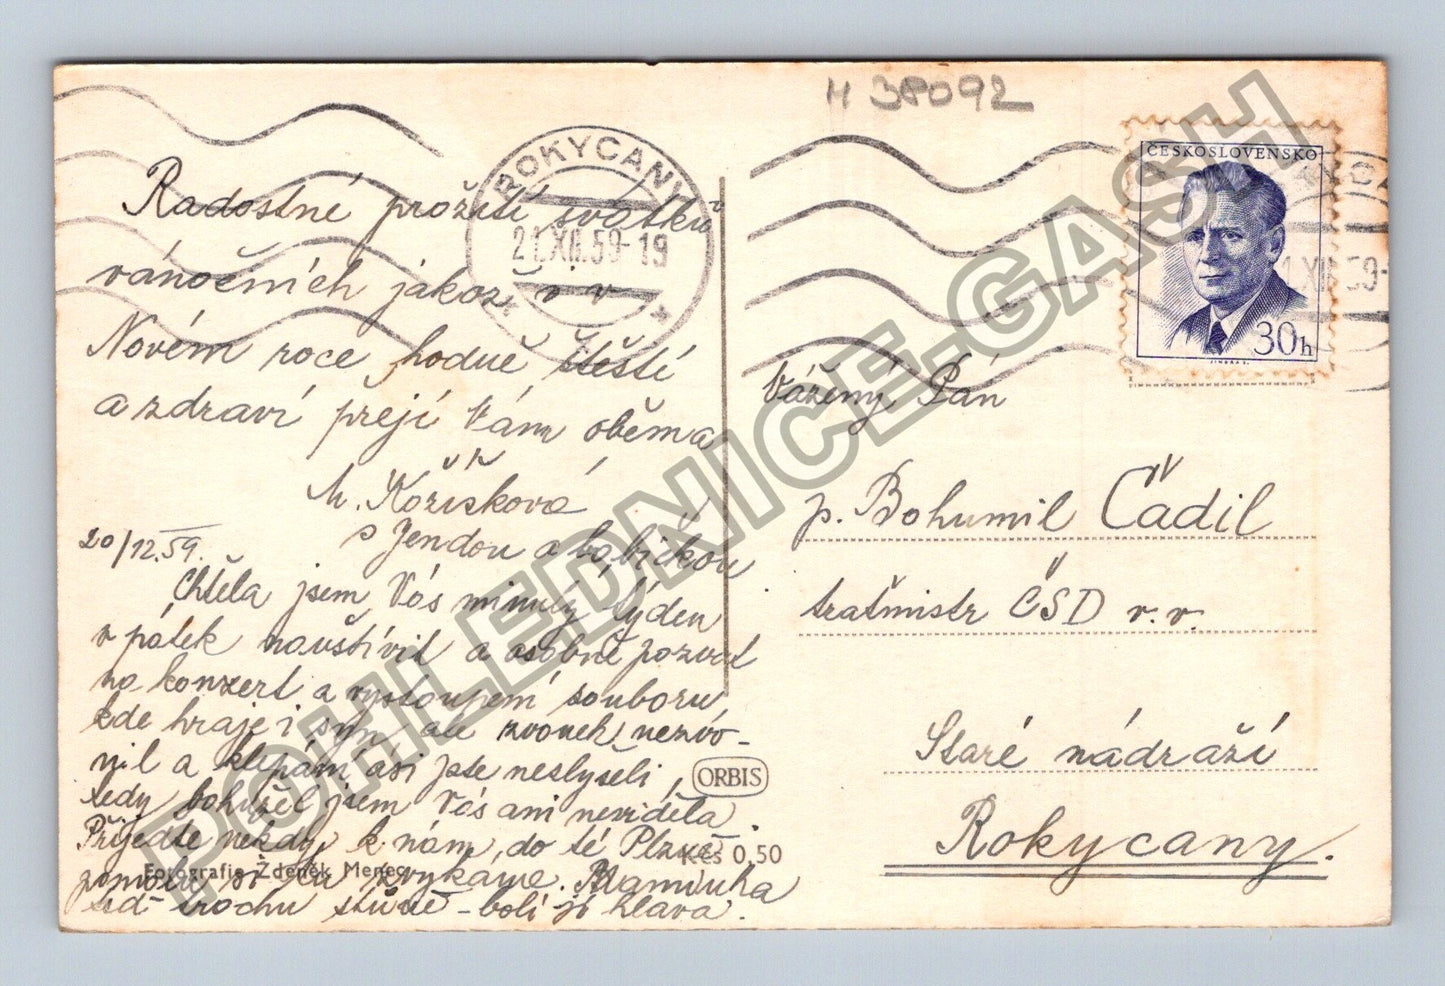 H 38092
ROKYCANY
21.XII.59-19
ČESKOSLOVENSKO
30h
Radostné prožití svátků
vánočních jakož i v
Novém roce hodně štěstí
a zdraví přejí Vám oběma
M. Kožíšková
s Jendou a babičkou
20/12.59.
Chtěla jsem Vás minulý týden
v pátek navštívit a osobně pozvat
na konzert a vystoupení souboru,
kde hraje i syn, ale zvonek nezvo-
nil a klepám asi jste neslyšeli,
tedy bohužel jsem Vás ani neviděla.
Přijeďte někdy k nám, do té Plzně
si tu zvykáme. Maminka
teď trochu stůně - bolí jí hlava.
Fotografie Zdeněk Menec
ORBIS
Kčs 0,50
Vážený Pán
p. Bohumil Čadil
traťmistr ČSD v. v.
Staré nádraží
Rokycany.
POHLEDNICE-GASH